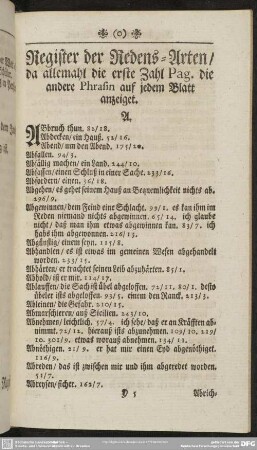 (o)
Register der Redens-Arten/
da allemahl die erste Zahl Pag. die
andere Phrasin auf jedem Blatt
anzeiget.
A.
ABbruch thun. 82/18.
Abdecken/ ein Hauß. 52/16.
Abend/ um den Abend. 175/20.
Abfallen. 94/3.
Abfällig machen/ ein Land. 244/10.
Abfassen/ einen Schluß in einer Sache. 233/16.
Abfordern/ einen. 56/18.
Abgehen/ es gehet seinem Hauß an Beqvemlichkeit nichts ab.
296/9.
Abgewinnen/ dem Feind eine Schlacht. 93/1. es kan ihm im
Reden niemand nichts abgewinnen. 65/14. ich glaube
nicht/ daß man ihm etwas abgewinnen kan. 83/7. ich
habs ihm abgewonnen. 216/13.
Abgünstig/ einem seyn. 115/8.
Abhandlen/ es ist etwas im gemeinen Wesen abgehandelt
worden. 233/15.
Abhärten/ er trachtet seinen Leib abzuhärten. 85/1.
Abhold/ ist er mir. 114/17.
Ablauffen/ die Sach ist übel abgeloffen. 72/21. 80/1. desto
übeler ists abgeloffen. 93/5. einem den Ranck. 213/3.
Ableinen/ die Gefahr. 210/15.
Abmarschieren/ aus Sicilien. 243/10.
Abnehmen/ leichtlich. 57/4. ich sehe/ daß er an Kräfften ab-
nimmt. 72/12. hierauß ists abzunehmen. 109/10. 219/
10. 301/9. etwas worauß abnehmen. 134/11.
Abnöthigen. 21/9. er hat mir einen Eyd abgenöthiget.
116/9.
Abreden/ das ist zwischen mir und ihm abgeredet worden.
51/7.
Abreysen/ sicher. 162/7.
Abrich-